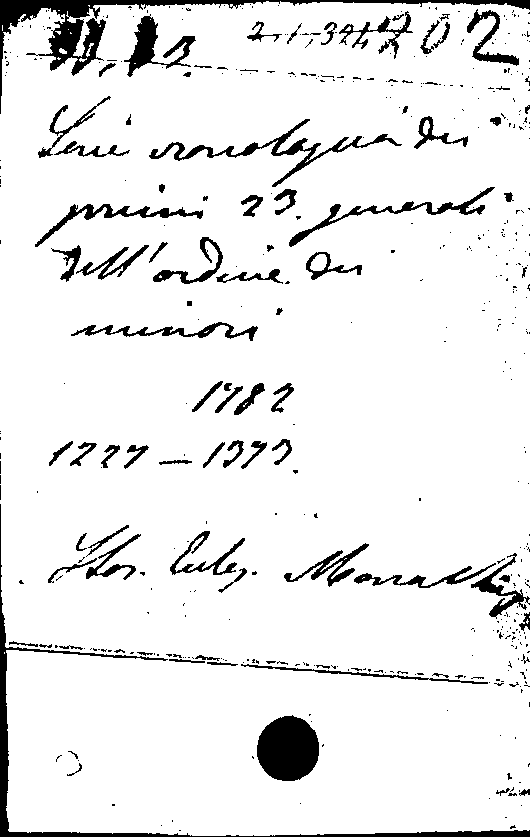 2.1.324 202
Serie cronologica dei
primi 23. generali
dell'ordine dei
minori
1782
1227 – 1373.
Stor. Eccles.